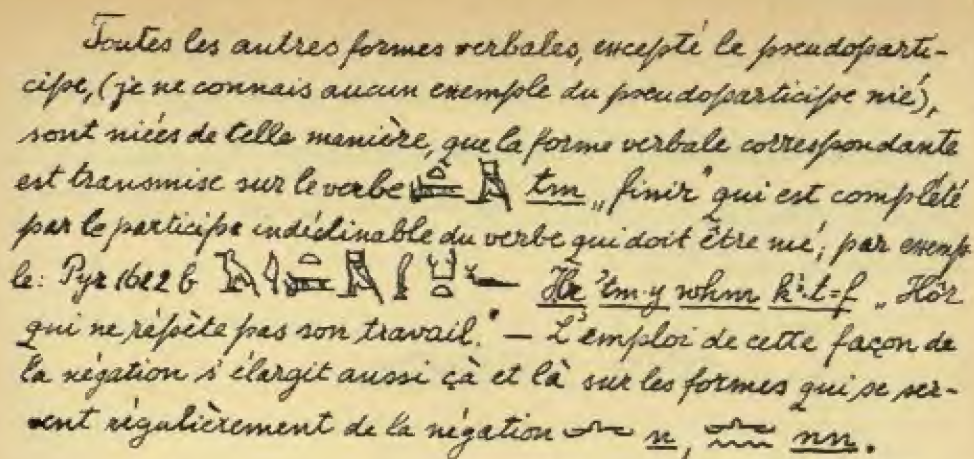 Toutes les autres formes verbales, excepté le pseudoparti-
cipe, (je ne connais aucun exemple du pseudoparticipe nié),
sont niées de telle menière, que la forme verbale correspondante
est transmise sur le verbe tm „finir" qui est complété
par le participe indéclinable du verbe qui doit être nié; par exemp
le: Pyr 1622 b tm·y whm k3·t=f „Hôr
qui ne répète pas son travail." — L'emploi de cette façon de
la négation s'élargit aussi çà et là sur les formes qui se ser-
vent régulièrement de la négation n, nn.